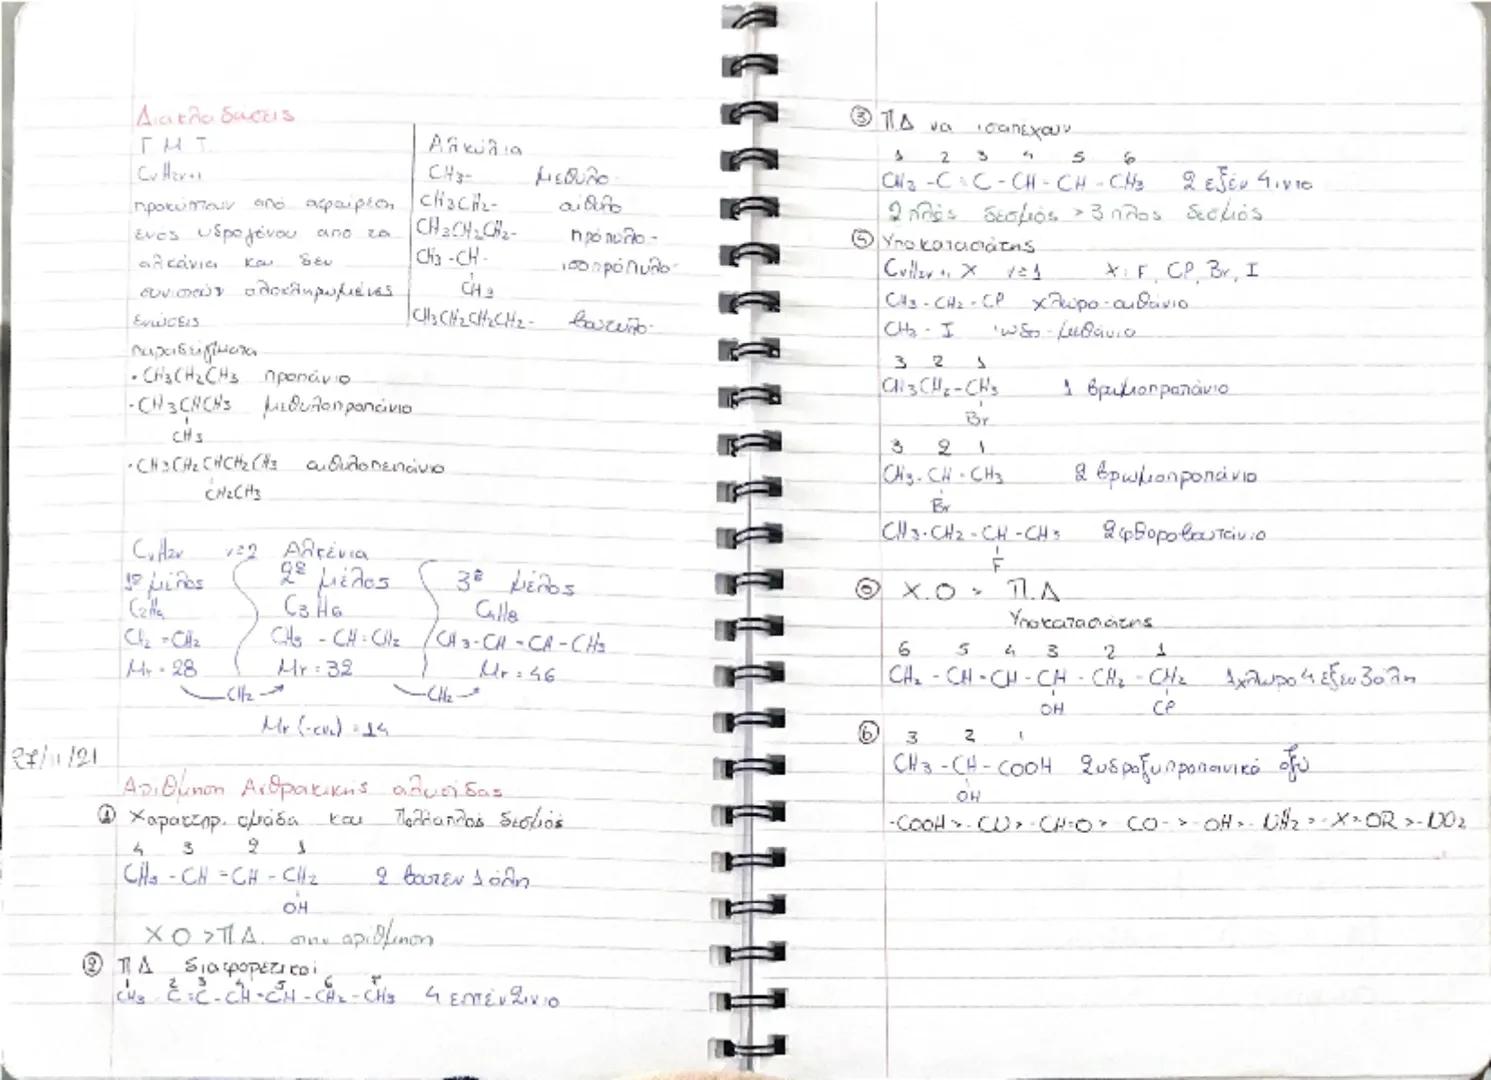 Διακλαδώσεις
Γ.Μ.Τ.
CνH2ν+1
προκύπτουν από αφαίρεση
ενός υδρογόνου από τα
αλκάνια και δεν
συνιστούν ολοκληρωμένες
ενώσεις
Αλκύλια
CH3- μεθυλο-
CH3CH2- αιθυλο
CH3CH2CH2- πρόπυλο-
CH3-CH- ισοπρόπυλο-
CH3
CH3CH2CH2CH2- βουτυλο-
παραδείγματα
• CH3CH2CH3 προπάνιο
• CH3CHCH3 μεθυλοπροπάνιο
CH3
• CH3CH2CHCH2CH3 αιθυλοπεντάνιο
CH2CH3
CνH2ν ν≥2 Αλκένια
1º μέλος 2º μέλος 3º μέλος
C2H4 C3H6 C4H8
CH2=CH2 CH3-CH=CH2 CH3-CH=CH-CH3
Mr=28 Mr=32 Mr=46
-CH2→ -CH2→
Mr(-CH2)=14
27/11/21
Αρίθμηση Ανθρακικής αλυσίδας
① Χαρακτηρ. ομάδα και Πολλαπλός δεσμός
4 3 2 1
CH3-CH=CH-CH2 2 βουτεν 1 όλη
OH
ΧΟ>ΠΔ. στην αρίθμηση
② ΠΔ διαφορετικοί
1 2 3 4 5 6 7
CH3 C≡C-CH=CH-CH2-CH3 4 επτέν 2ινιο
③ ΠΔ να ισαπέχουν
1 2 3 4 5 6
CH3-C≡C-CH=CH-CH3 2 εξέν 4ινιο
2πλός δεσμός > 3πλος δεσμός
④ Υποκαταστάτης
CνH2ν+1X ν≥1 X: F, Cl, Br, I
CH3-CH2-Cl χλωρο-αιθάνιο
CH3-I ιωδο-μεθάνιο
3 2 1
CH3CH2-CH3 1 βρωμοπροπάνιο
Br
3 2 1
CH3-CH-CH3 2 βρωμοπροπάνιο
Br
CH3-CH2-CH-CH3 2φθοροβουτάνιο
F
⑤ Χ.Ο > Π.Δ
Υποκαταστάτης
6 5 4 3 2 1
CH2-CH=CH-CH-CH2-CH2 1χλωρο 4 εξεν 3όλη
OH Cl
⑥ 3 2 1
CH3-CH-COOH 2υδροξυπροπανικό οξύ
OH
-COOH>-CN>-CH=O>-CO->-OH>-NH2>-X>-OR>-NO2